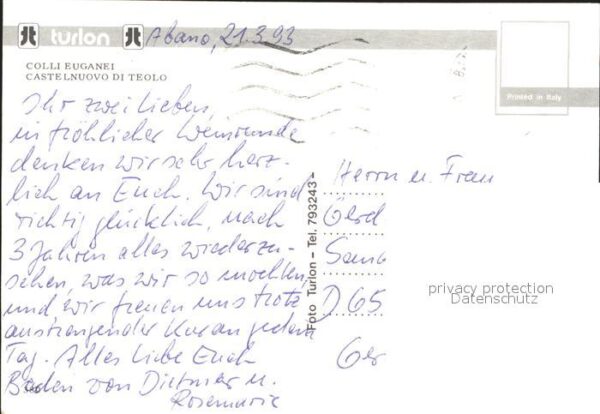 turlon
Abano, 21.3.93
COLLI EUGANEI
CASTELNUOVO DI TEOLO
Printed in Italy
Ihr zwei Lieben,
in fröhlicher Weinrunde
denken wir sehr herz-
lich an Euch. Wir sind
richtig glücklich, nach
3 Jahren alles wiederzu-
sehen, was wir so mochten,
und wir freuen uns trotz
anstrengender Kur an jedem
Tag. Alles Liebe Euch
Beiden von Dietmar u.
Rosemarie
Foto Turlon - Tel. 793243-
Herrn u. Frau
Gerd
D 65
Ger
privacy protection
Datenschutz